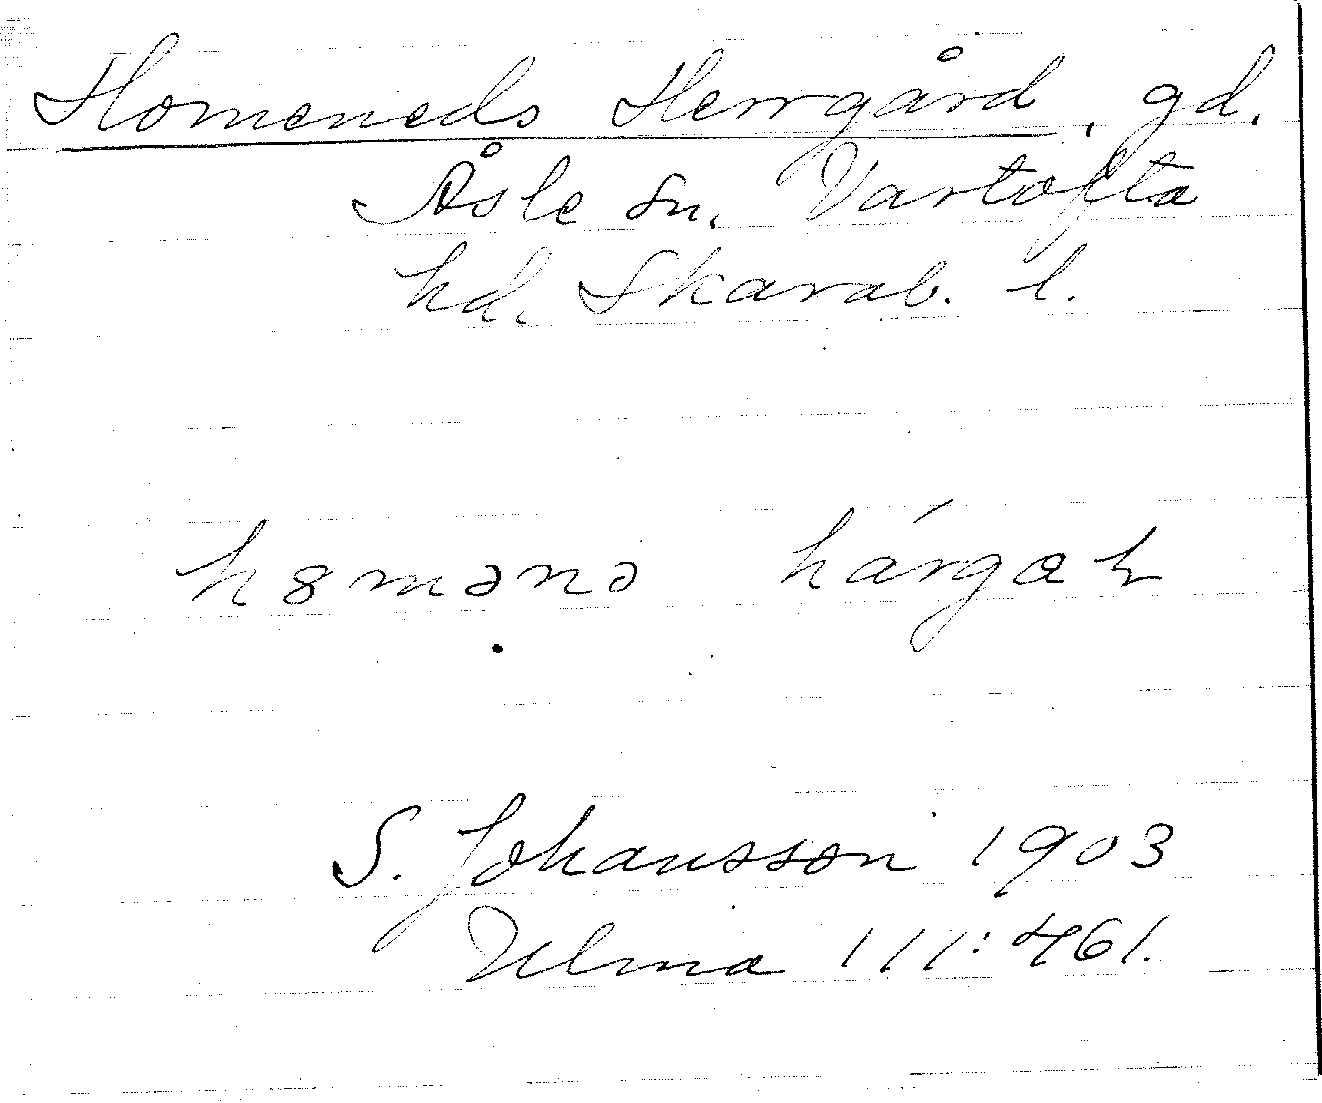 Homeneds Herrgård, gd.
Åsle sn. Vartofta
hd. Skarab. l.
hȣmənə
S. Johansson 1903
Ulma 111:461.